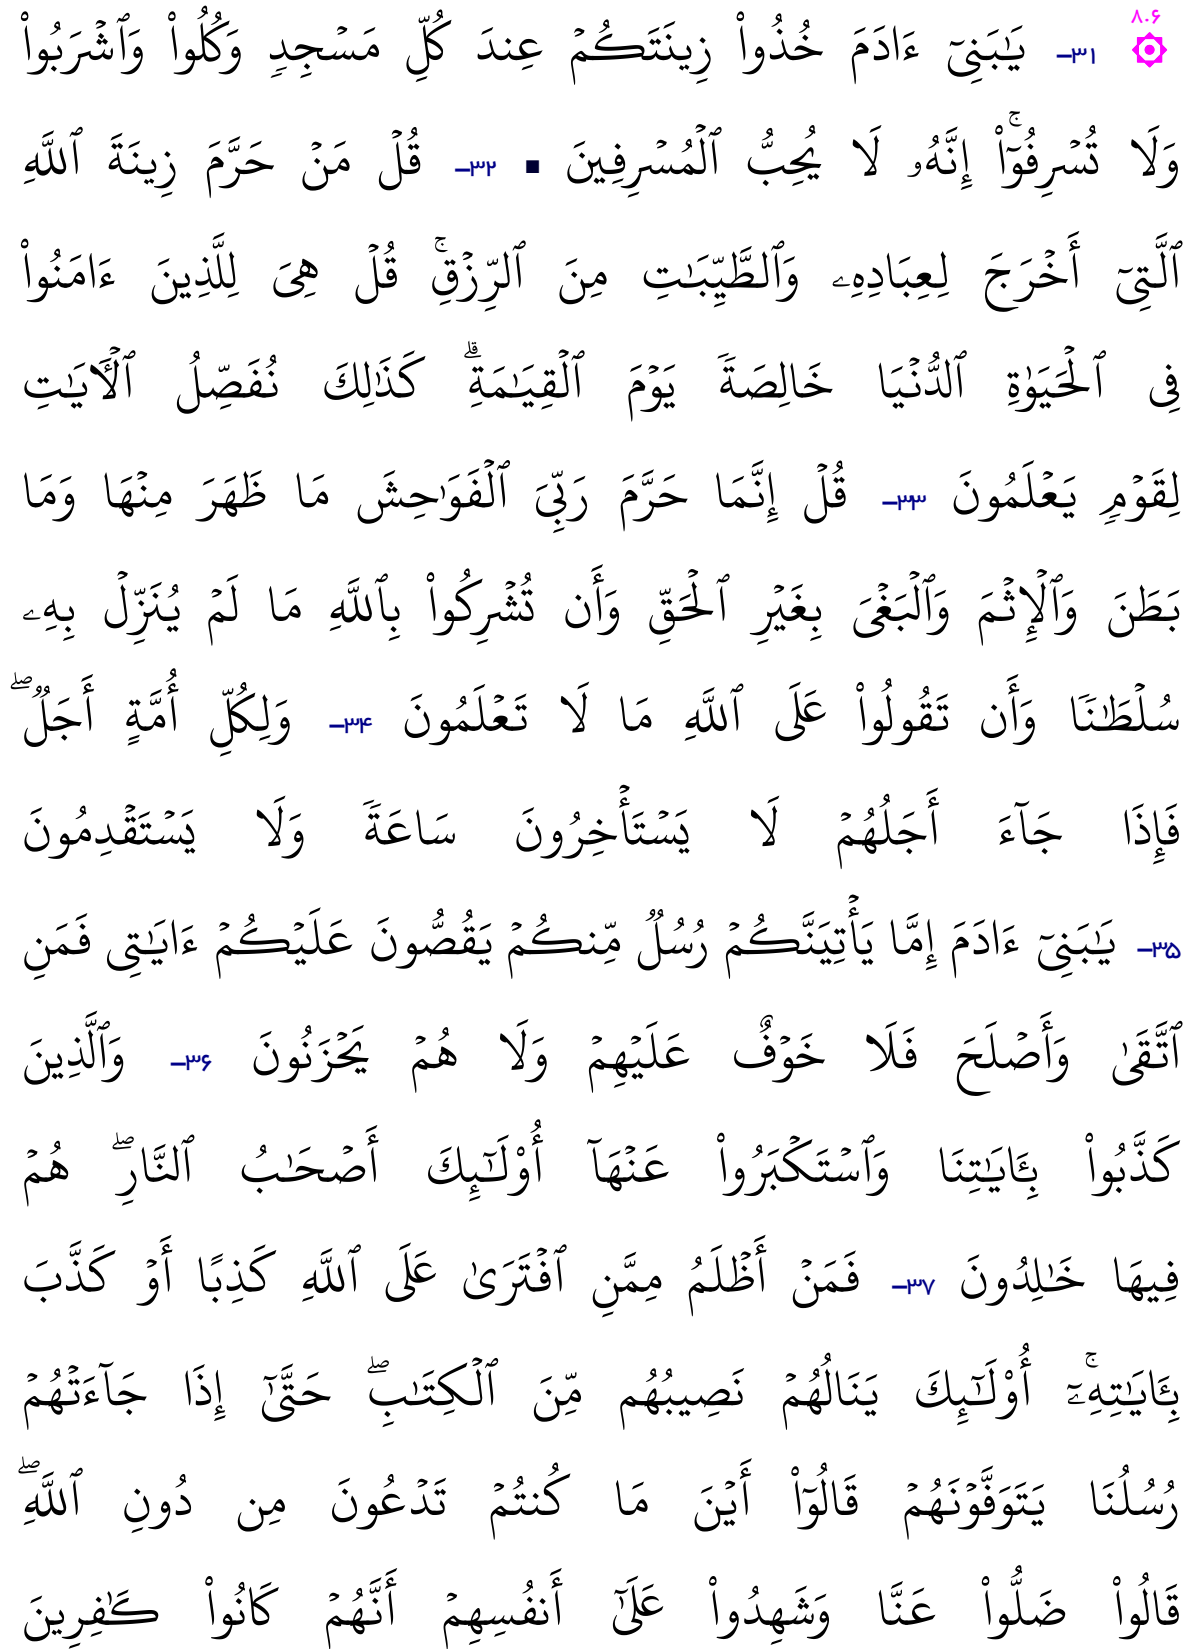 ۸.۶
۳۱- يَـٰبَنِىٓ ءَادَمَ خُذُوا۟ زِينَتَكُمْ عِندَ كُلِّ مَسْجِدٍۢ وَكُلُوا۟ وَٱشْرَبُوا۟
وَلَا تُسْرِفُوٓا۟ ۚ إِنَّهُۥ لَا يُحِبُّ ٱلْمُسْرِفِينَ ■ ۳۲- قُلْ مَنْ حَرَّمَ زِينَةَ ٱللَّهِ
ٱلَّتِىٓ أَخْرَجَ لِعِبَادِهِۦ وَٱلطَّيِّبَـٰتِ مِنَ ٱلرِّزْقِ ۚ قُلْ هِىَ لِلَّذِينَ ءَامَنُوا۟
فِى ٱلْحَيَوٰةِ ٱلدُّنْيَا خَالِصَةًۭ يَوْمَ ٱلْقِيَـٰمَةِ ۗ كَذَٰلِكَ نُفَصِّلُ ٱلْـَٔايَـٰتِ
لِقَوْمٍۢ يَعْلَمُونَ ۳۳- قُلْ إِنَّمَا حَرَّمَ رَبِّىَ ٱلْفَوَٰحِشَ مَا ظَهَرَ مِنْهَا وَمَا
بَطَنَ وَٱلْإِثْمَ وَٱلْبَغْىَ بِغَيْرِ ٱلْحَقِّ وَأَن تُشْرِكُوا۟ بِٱللَّهِ مَا لَمْ يُنَزِّلْ بِهِۦ
سُلْطَـٰنًۭا وَأَن تَقُولُوا۟ عَلَى ٱللَّهِ مَا لَا تَعْلَمُونَ ۳۴- وَلِكُلِّ أُمَّةٍ أَجَلٌۭ ۖ
فَإِذَا جَآءَ أَجَلُهُمْ لَا يَسْتَأْخِرُونَ سَاعَةًۭ وَلَا يَسْتَقْدِمُونَ
۳۵- يَـٰبَنِىٓ ءَادَمَ إِمَّا يَأْتِيَنَّكُمْ رُسُلٌۭ مِّنكُمْ يَقُصُّونَ عَلَيْكُمْ ءَايَـٰتِى فَمَنِ
ٱتَّقَىٰ وَأَصْلَحَ فَلَا خَوْفٌ عَلَيْهِمْ وَلَا هُمْ يَحْزَنُونَ ۳۶- وَٱلَّذِينَ
كَذَّبُوا۟ بِـَٔايَـٰتِنَا وَٱسْتَكْبَرُوا۟ عَنْهَآ أُو۟لَـٰٓئِكَ أَصْحَـٰبُ ٱلنَّارِ ۖ هُمْ
فِيهَا خَـٰلِدُونَ ۳۷- فَمَنْ أَظْلَمُ مِمَّنِ ٱفْتَرَىٰ عَلَى ٱللَّهِ كَذِبًا أَوْ كَذَّبَ
بِـَٔايَـٰتِهِۦٓ ۚ أُو۟لَـٰٓئِكَ يَنَالُهُمْ نَصِيبُهُم مِّنَ ٱلْكِتَـٰبِ ۖ حَتَّىٰٓ إِذَا جَآءَتْهُمْ
رُسُلُنَا يَتَوَفَّوْنَهُمْ قَالُوٓا۟ أَيْنَ مَا كُنتُمْ تَدْعُونَ مِن دُونِ ٱللَّهِ ۖ
قَالُوا۟ ضَلُّوا۟ عَنَّا وَشَهِدُوا۟ عَلَىٰٓ أَنفُسِهِمْ أَنَّهُمْ كَانُوا۟ كَـٰفِرِينَ